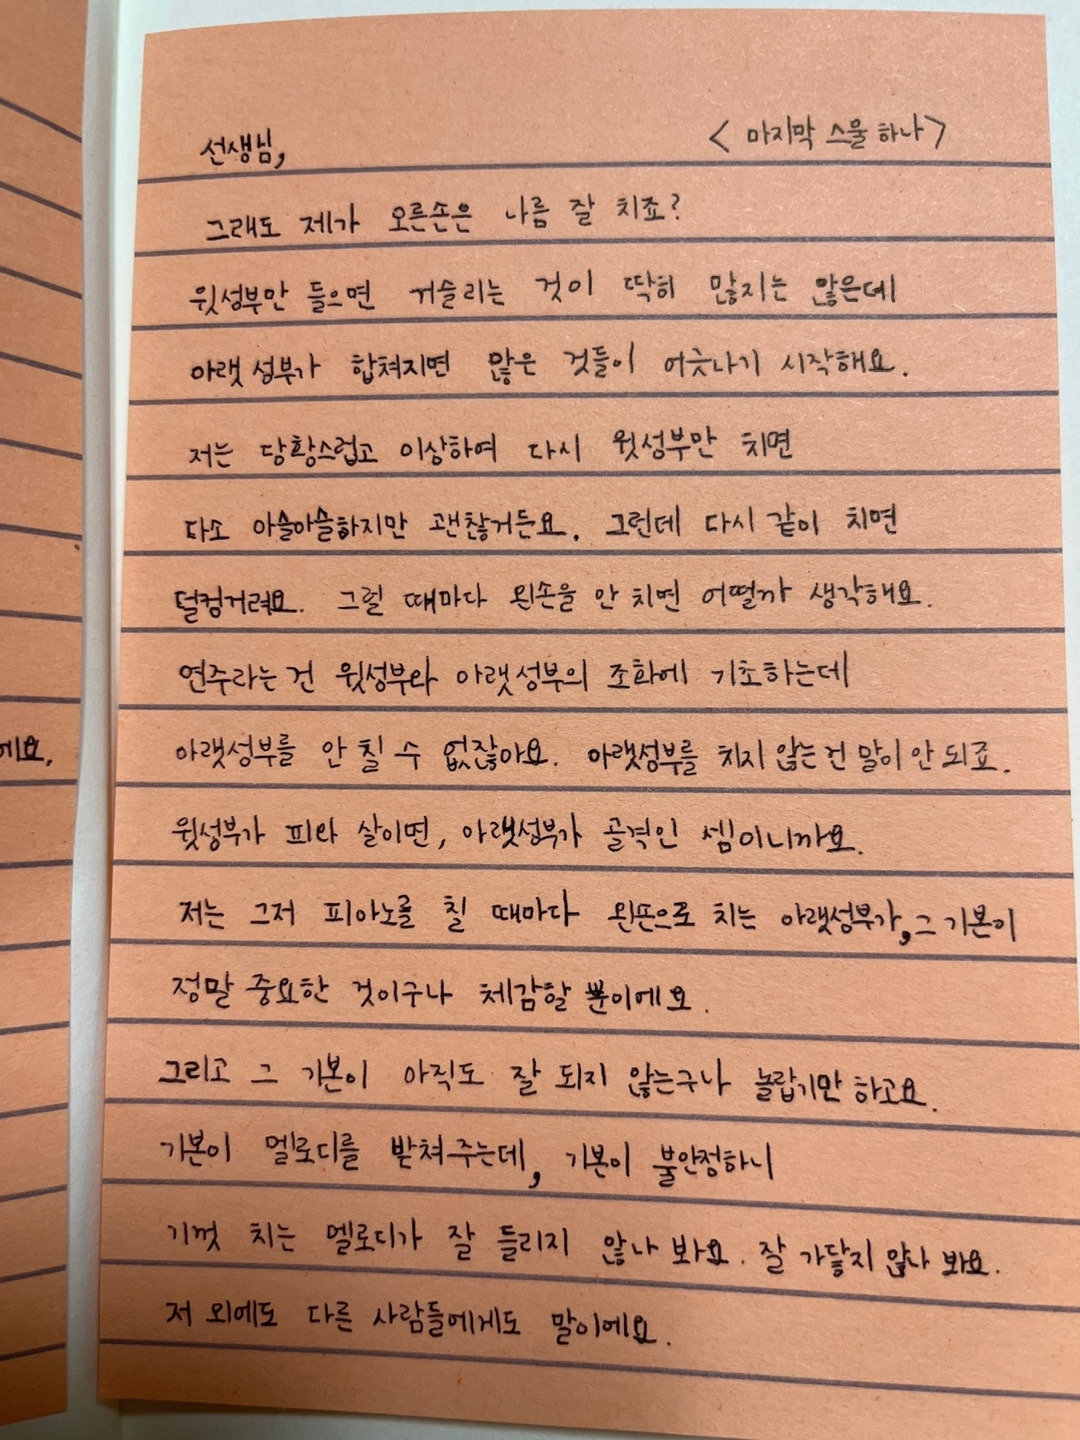 선생님,
< 마지막 스물 하나 >
그래도 제가 오른손은 나름 잘 치죠?
윗성부만 들으면 거슬리는 것이 딱히 많지는 않은데
아랫성부가 합쳐지면 많은 것들이 어긋나기 시작해요.
저는 당황스럽고 이상하여 다시 윗성부만 치면
다소 아슬아슬하지만 괜찮거든요. 그런데 다시 같이 치면
덜컹거려요. 그럴 때마다 왼손을 안 치면 어떨까 생각해요.
연주라는 건 윗성부와 아랫성부의 조화에 기초하는데
에요,
아랫성부를 안 칠 수 없잖아요. 아랫성부를 치지 않는 건 말이 안 되죠.
윗성부가 피와 살이면, 아랫성부가 골격인 셈이니까요.
저는 그저 피아노를 칠 때마다 왼손으로 치는 아랫성부가, 그 기본이
정말 중요한 것이구나 체감할 뿐이에요.
그리고 그 기본이 아직도 잘 되지 않는구나 놀랍기만 하고요.
기본이 멜로디를 받쳐주는데, 기본이 불안정하니
기껏 치는 멜로디가 잘 들리지 않나 봐요. 잘 가닿지 않나 봐요.
저 외에도 다른 사람들에게도 말이에요.